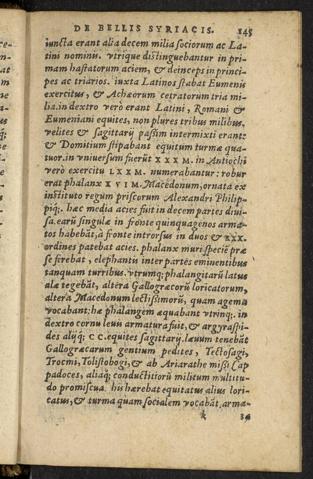 DE BELLIS SYRIACIS. 145
iuncta erant alia decem milia sociorum ac La-
tini nominis. vtrique distinguebantur in pri-
mam hastatorum aciem, & deinceps in princi-
pes ac triarios. iuxta Latinos stabat Eumenis
exercitus, & Achæorum cetratorum tria mi-
lia. in dextro verò erant Latini, Romani &
Eumeniani equites, non plures tribus milibus.
velites & sagittarij passim intermixti erant:
& Domitium stipabant equitum turmæ qua-
tuor. in vniuersum fuerūt XXXM. in Antiochi
verò exercitu LXXM. numerabantur: robur
erat phalanx XVIM. Macedonum, ornata ex
instituto regum priscorum Alexandri Philip-
piq;. hæc media acies fuit in decem partes diui-
sa. earū singulæ in fronte quinquagenos arma-
tos habebāt, à fronte introrsus in duos & XXX.
ordines patebat acies. phalanx muri speciē præ
se ferebat, elephanti inter partes eminentibus
tanquam turribus. vtrumq; phalangitarū latus
alæ tegebāt, altera Gallogræcorū loricatorum,
altera Macedonum lectissimorū, quam agema
vocabant: hæ phalangem æquabant vtrinq;. in
dextro cornu leuis armatura fuit, & argyraspi-
des alij q; CC. equites sagittarij. læuum tenebāt
Gallogræcarum gentium pedites, Tectosagi,
Trocmi, Tolistobogi, & ab Ariarathe missi Cap
padoces, aliaq; conductitiorū militum multitu-
do promiscua. his hærebat equitatus alius lori-
catus, & turma quam socialem vocabāt, arma-
k